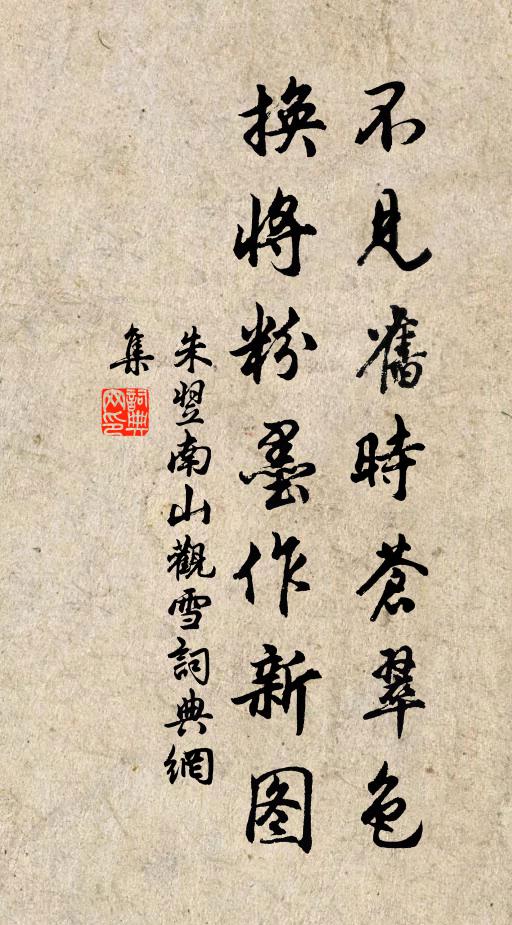 不見舊時蒼翠色
換將粉墨作新图
朱翌南山觀雪詞典網
集
詞典
网印